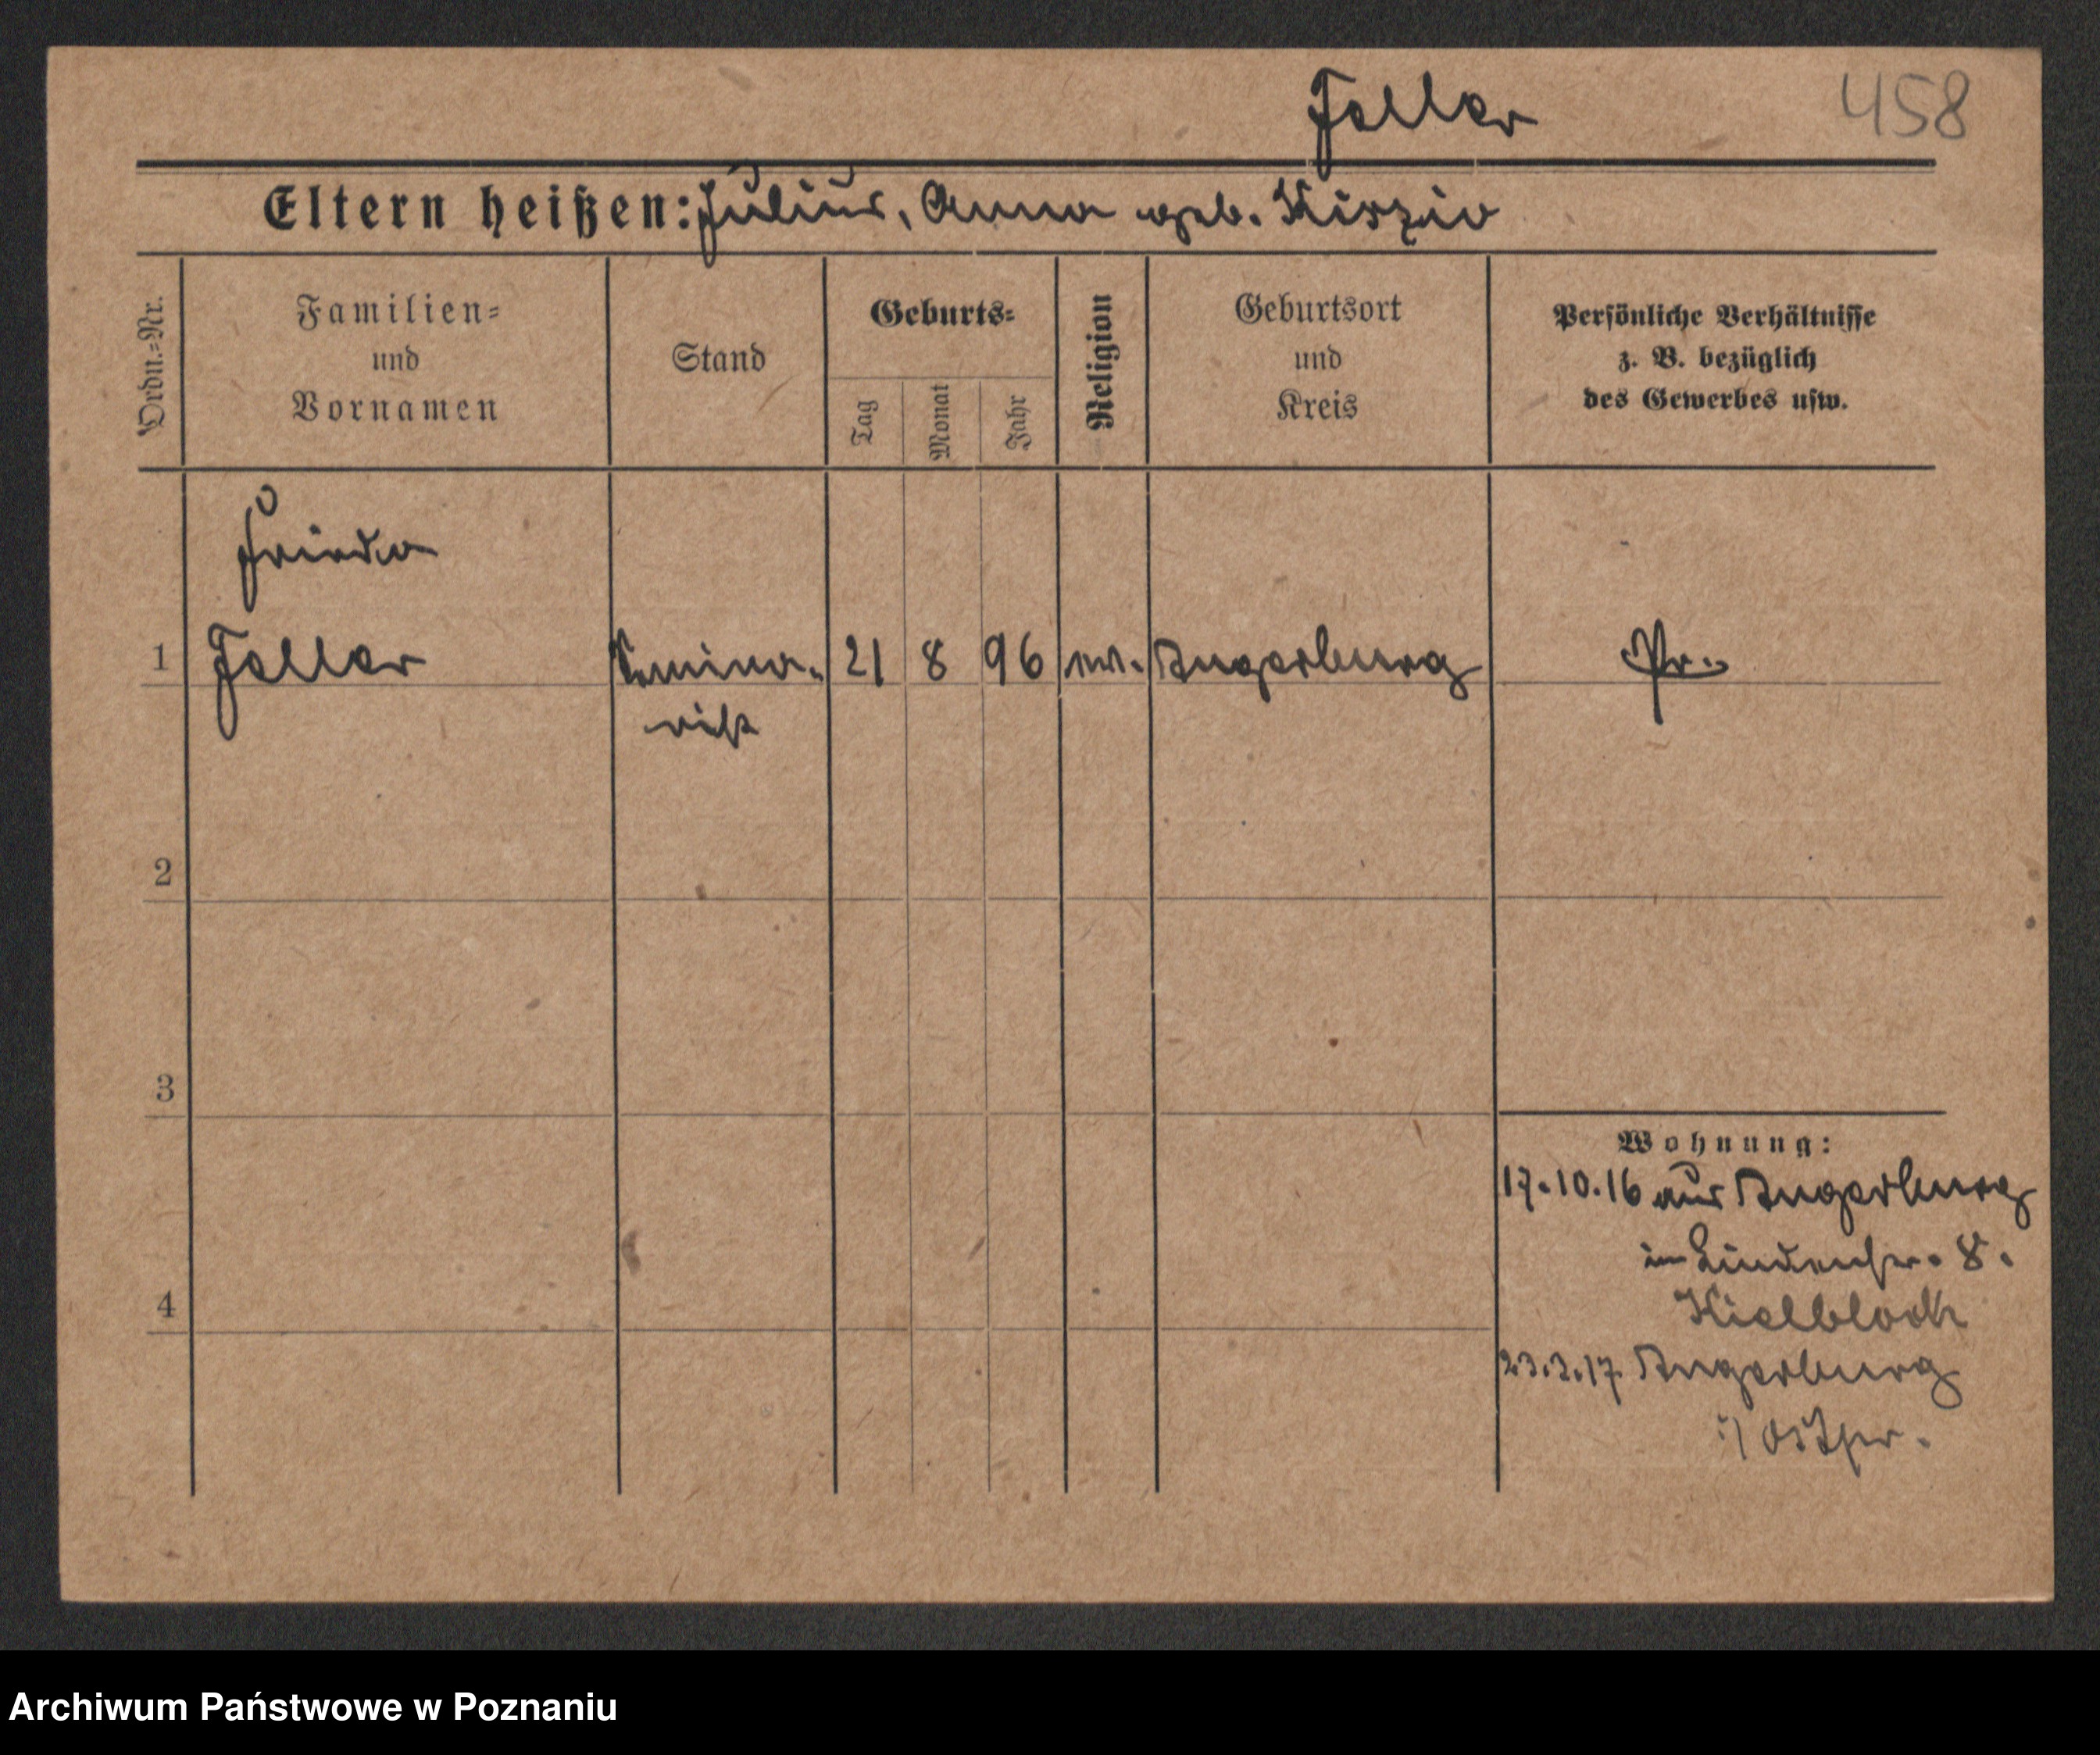 Feller
458
Eltern heißen: Julius, Anna geb. Kirzio
Ordn.=Nr.
Familien=
und
Vornamen
Stand
Geburts=
Tag
Monat
Jahr
Religion
Geburtsort
und
Kreis
Persönliche Verhältnisse
z. B. bezüglich
des Gewerbes usw.
Frieda
1 Feller Semina- 21 8 96 ev. Angerburg Pr.
rist
2
3
Wohnung:
17.10.16 aus Angerburg
in Lindenstr. 8.
Kielblock
4
23.3.17 Angerburg
i/ Ostpr.
Archiwum Państwowe w Poznaniu